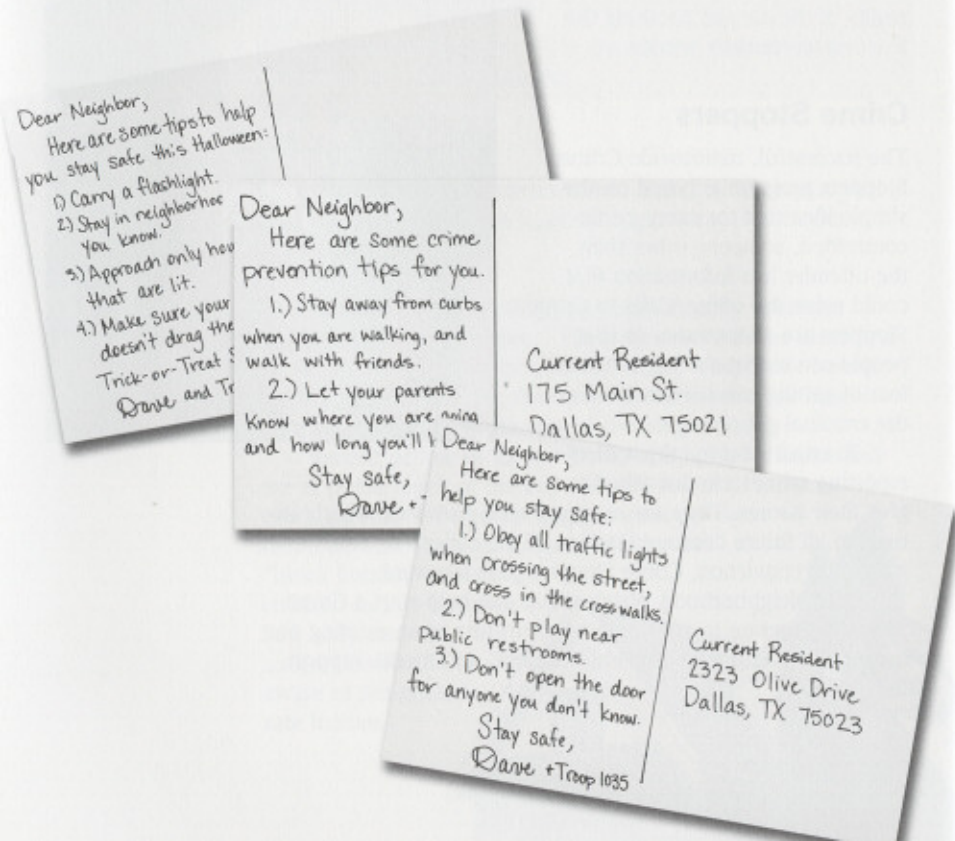 Dear Neighbor,
Here are some tips to help
you stay safe this Halloween:
1) Carry a flashlight.
2.) Stay in
you know.
3.) Approach only
that are lit.
4.) Make sure your
doesn't drag the
Trick-or-Treat
Dave and
Dear Neighbor,
Here are some crime
prevention tips for you.
1.) Stay away from curbs
when you are walking, and
walk with friends.
2.) Let your parents
Know where you are going
and how long you'll
Stay safe,
Dave
Current Resident
175 Main St.
Dallas, TX 75021
Dear Neighbor,
Here are some tips to
help you stay safe:
1.) Obey all traffic lights
when crossing the street,
and cross in the crosswalks.
2.) Don't play near
public restrooms.
3.) Don't open the door
for anyone you don't know.
Stay safe,
Dave + Troop 1035
Current Resident
2323 Olive Drive
Dallas, TX 75023
Crime Stoppers